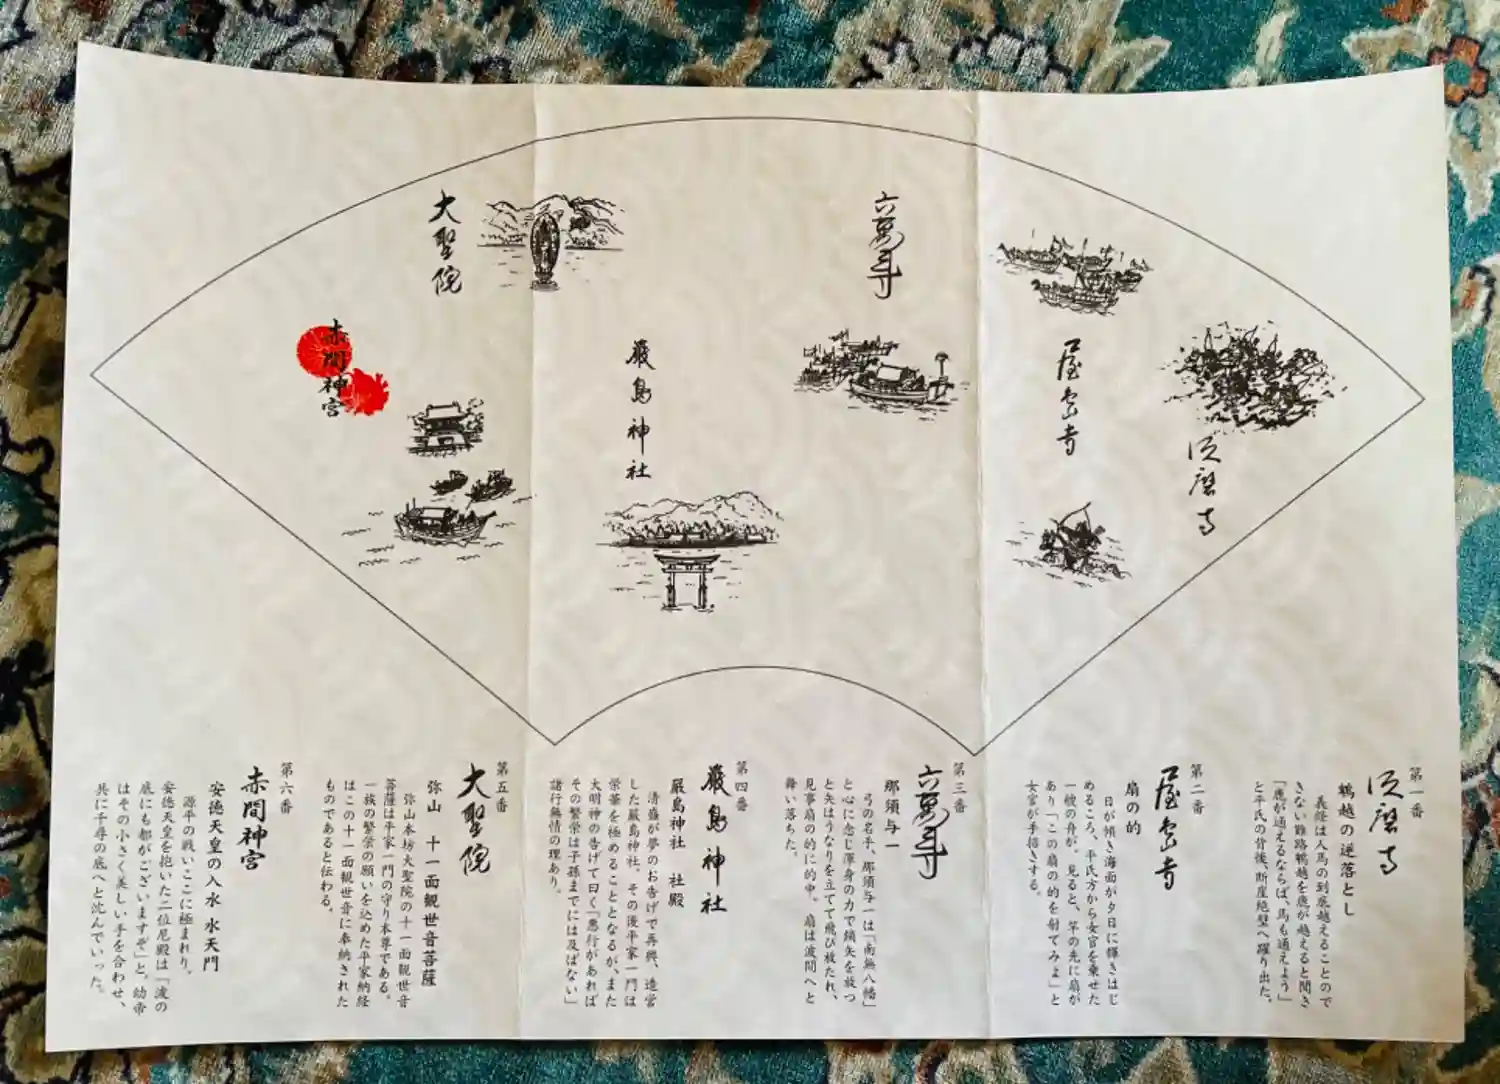 六萬寺
屋島寺
須磨寺
大聖院
厳島神社
赤間神宮
第一番
須磨寺
鵯越の逆落とし
義経は人馬の到底越えることので
きない難路鵯越を鹿が越えると聞き
「鹿が通えるならば、馬も通えよう」
と平氏の背後、断崖絶壁へ躍り出た。
第二番
屋島寺
扇の的
日が傾き海面が夕日に輝きはじ
めるころ、平氏方から女官を乗せた
一艘の舟が。見ると、竿の先に扇が
あり「この扇の的を射てみよ」と
女官が手招きする。
第三番
六萬寺
那須与一
弓の名手、那須与一は「南無八幡」
と心に念じ渾身の力で鏑矢を放つ
と矢はうなりを立てて飛び放たれ、
見事扇の的に的中。扇は波間へと
舞い落ちた。
第四番
厳島神社
厳島神社 社殿
清盛が夢のお告げで再興、造営
した厳島神社。その後平家一門は
栄華を極めることとなるが、また
大明神の告げて曰く「悪行があれば
その繁栄は子孫までには及ばない」
諸行無情の理あり。
第五番
大聖院
弥山 十一面観世音菩薩
弥山本坊大聖院の十一面観世音
菩薩は平家一門の守り本尊である。
一族の繁栄の願いを込めた平家納経
はこの十一面観世音に奉納された
ものであると伝わる。
第六番
赤間神宮
安徳天皇の入水 水天門
源平の戦いここに極まれり。
安徳天皇を抱いた二位尼殿は「波の
底にも都がございますぞ」と。幼帝
はその小さく美しい手を合わせ、
共に千尋の底へと沈んでいった。